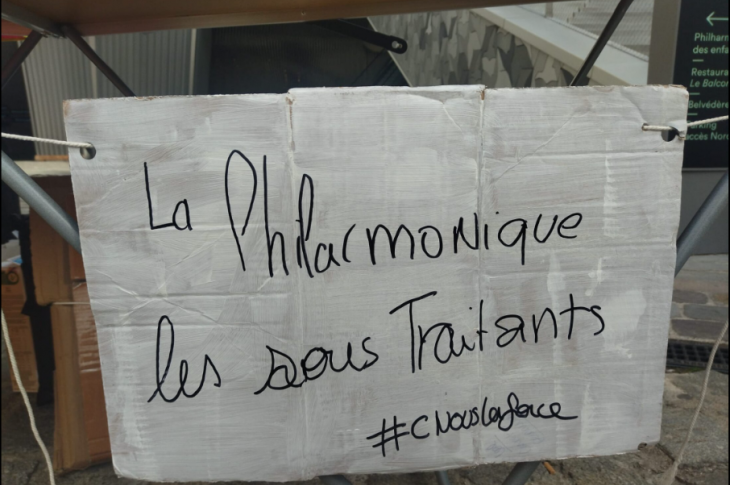 La Philarmonique
les sous Traitants
#CNousLaforce
←
Philharm
des enfa
Restaura
Le Balcon
Belvédère
arking
accès Nor